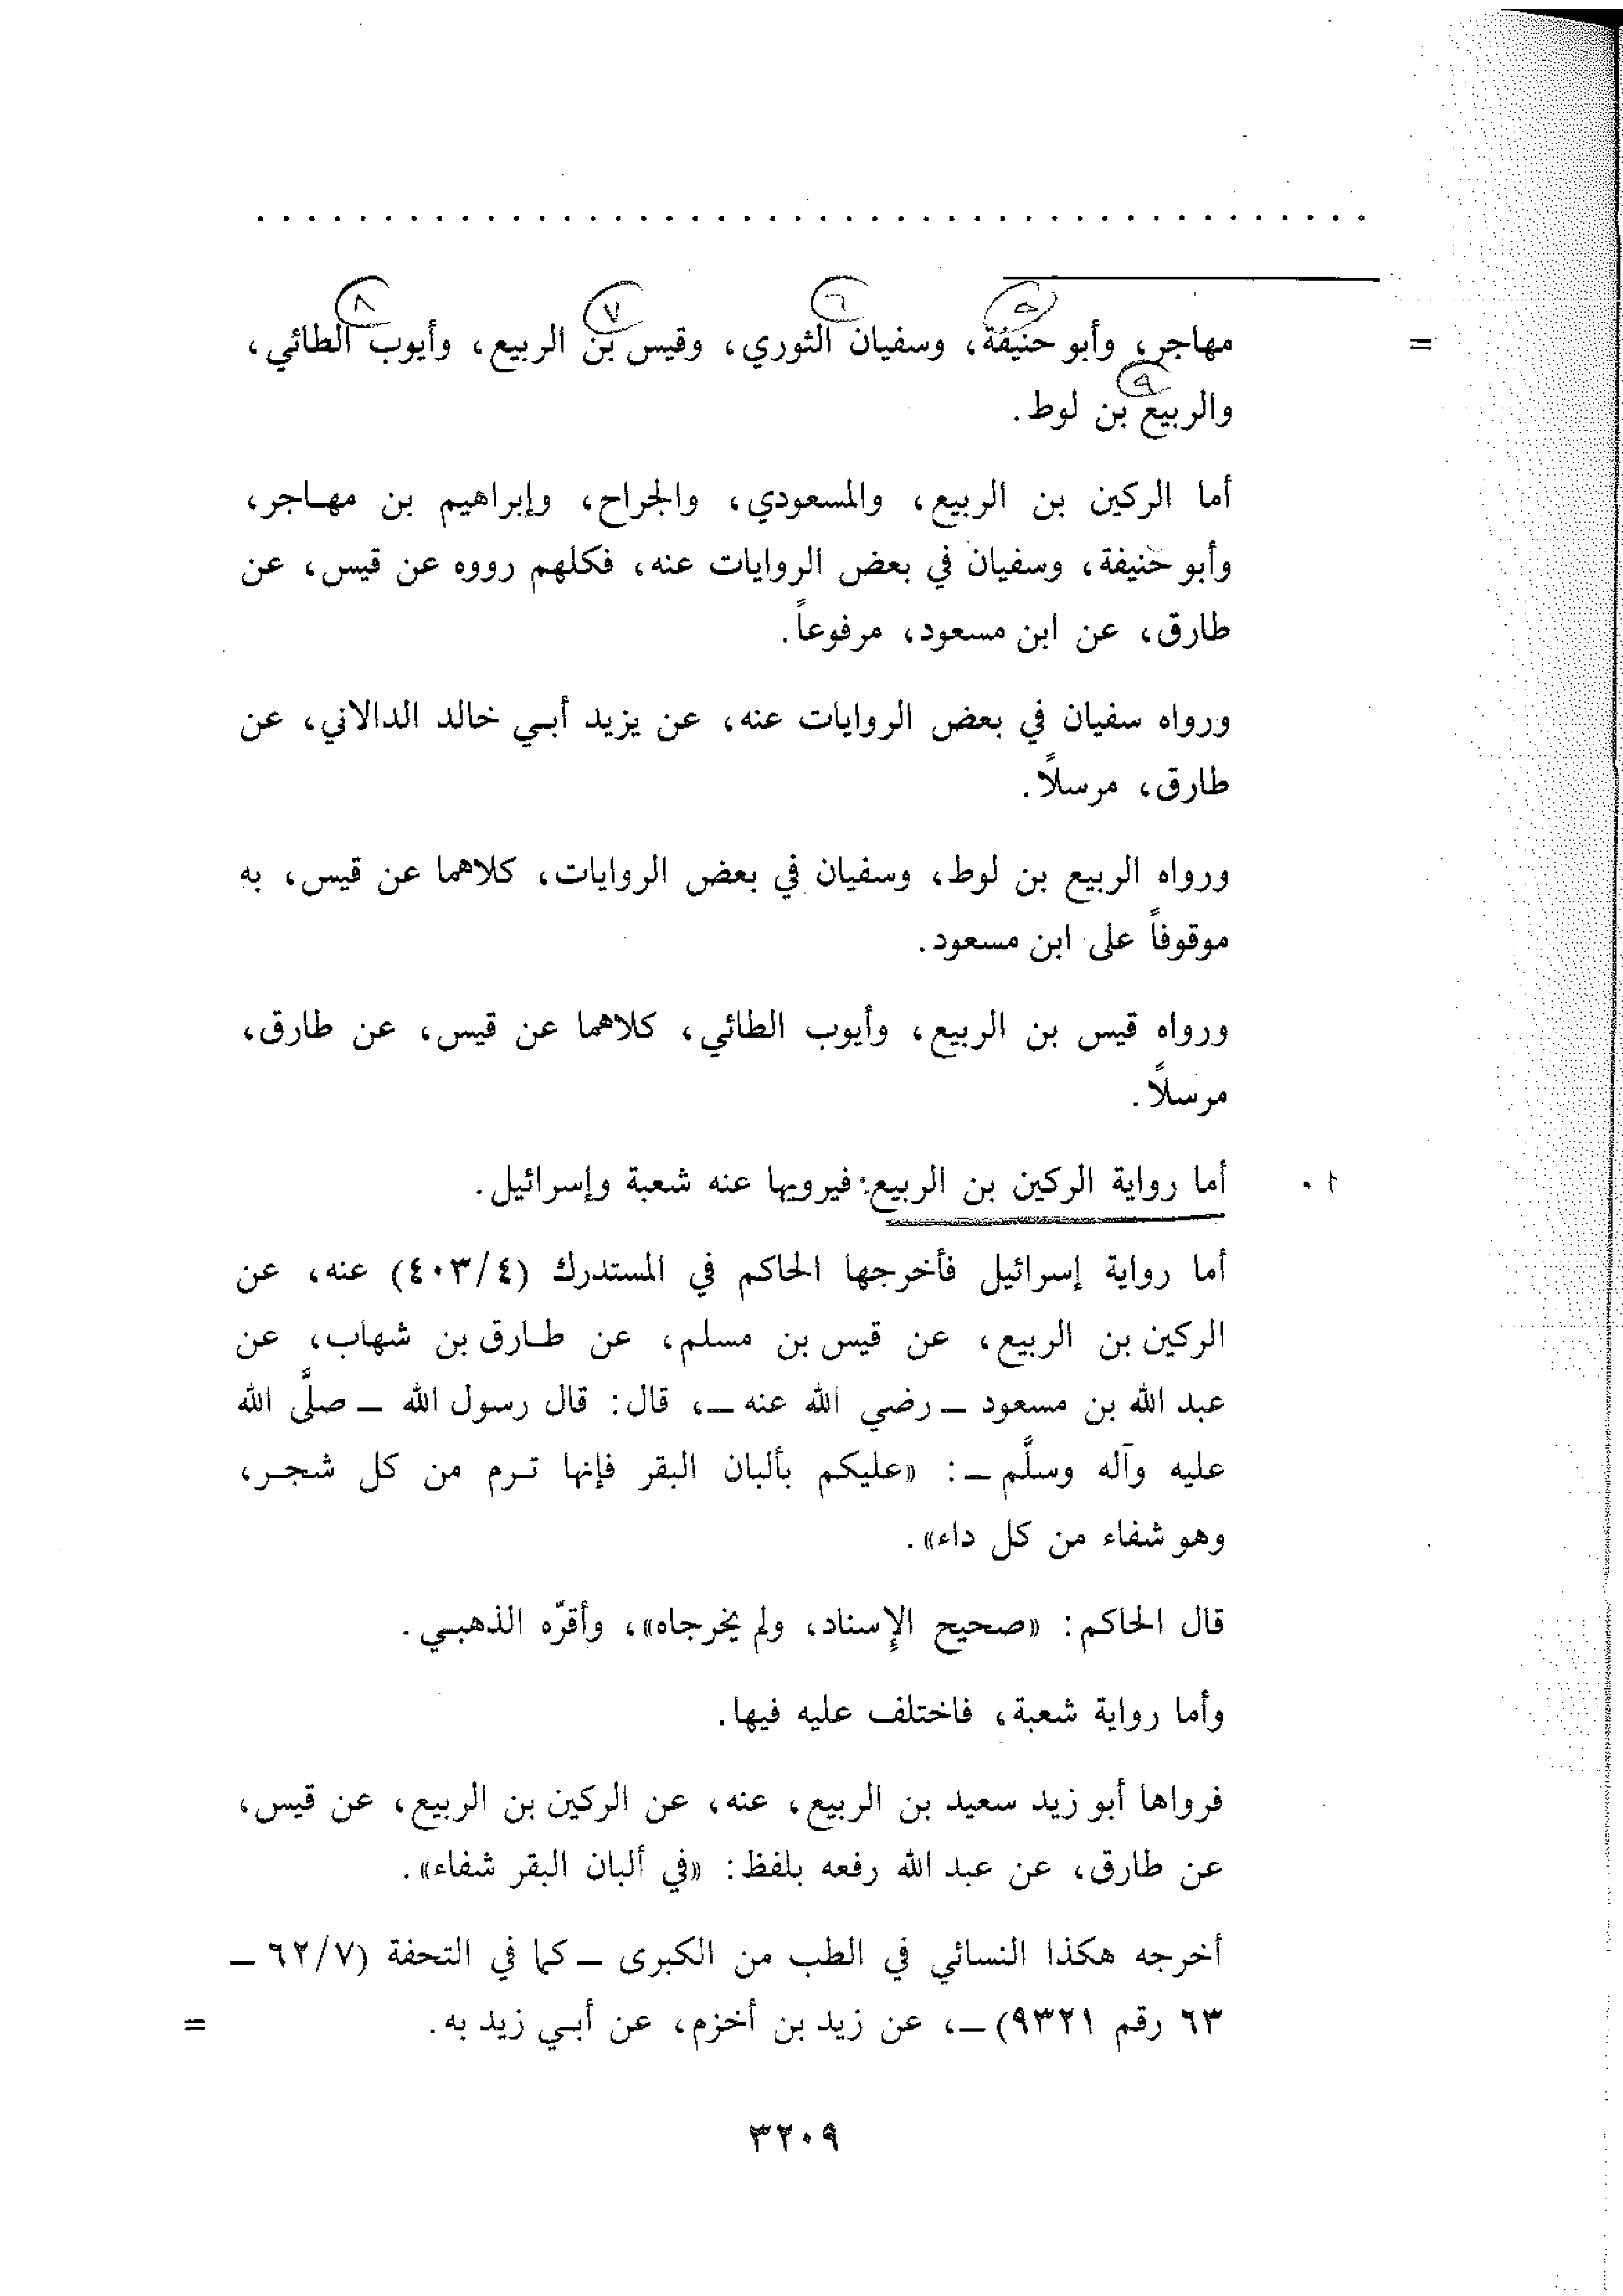 . . . . . . . . . . . . . . . . . . . . . . . . . . . . . . . . . . . . . . . . . . . .
٨ ٧ ٦ ٥
= مهاجر، وأبو حنيفة، وسفيان الثوري، وقيس بن الربيع، وأيوب الطائي،
٩
والربيع بن لوط.
أما الركين بن الربيع، والمسعودي، والجراح، وإبراهيم بن مهـاجر،
وأبو حنيفة، وسفيان في بعض الروايات عنه، فكلهم رووه عن قيس، عن
طارق، عن ابن مسعود، مرفوعاً.
ورواه سفيان في بعض الروايات عنه، عن يزيد أبـي خالد الدالاني، عن
طارق، مرسلاً.
ورواه الربيع بن لوط، وسفيان في بعض الروايات، كلاهما عن قيس، به
موقوفاً على ابن مسعود.
ورواه قيس بن الربيع، وأيوب الطائي، كلاهما عن قيس، عن طارق،
مرسلاً.
١. أما رواية الركين بن الربيع: فيرويها عنه شعبة وإسرائيل.
أما رواية إسرائيل فأخرجها الحاكم في المستدرك (٤٠٣/٤) عنه، عن
الركين بن الربيع، عن قيس بن مسلم، عن طـارق بن شهاب، عن
عبد الله بن مسعود ــ رضي الله عنه ــ، قال: قال رسول الله ــ صلَّى الله
عليه وآله وسلَّم ــ: «عليكم بألبان البقر فإنها تـرم من كل شجـر،
وهو شفاء من كل داء».
قال الحاكم: «صحيح الإسناد، ولم يخرجاه»، وأقرّه الذهبـي.
وأما رواية شعبة، فاختلف عليه فيها.
فرواها أبو زيد سعيد بن الربيع، عنه، عن الركين بن الربيع، عن قيس،
عن طارق، عن عبد الله رفعه بلفظ: «في ألبان البقر شفاء».
أخرجه هكذا النسائي في الطب من الكبرى ــ كما في التحفة (٦٢/٧ ــ
٦٣ رقم ٩٣٢١) ــ، عن زيد بن أخزم، عن أبـي زيد به. =
٣٢٠٩